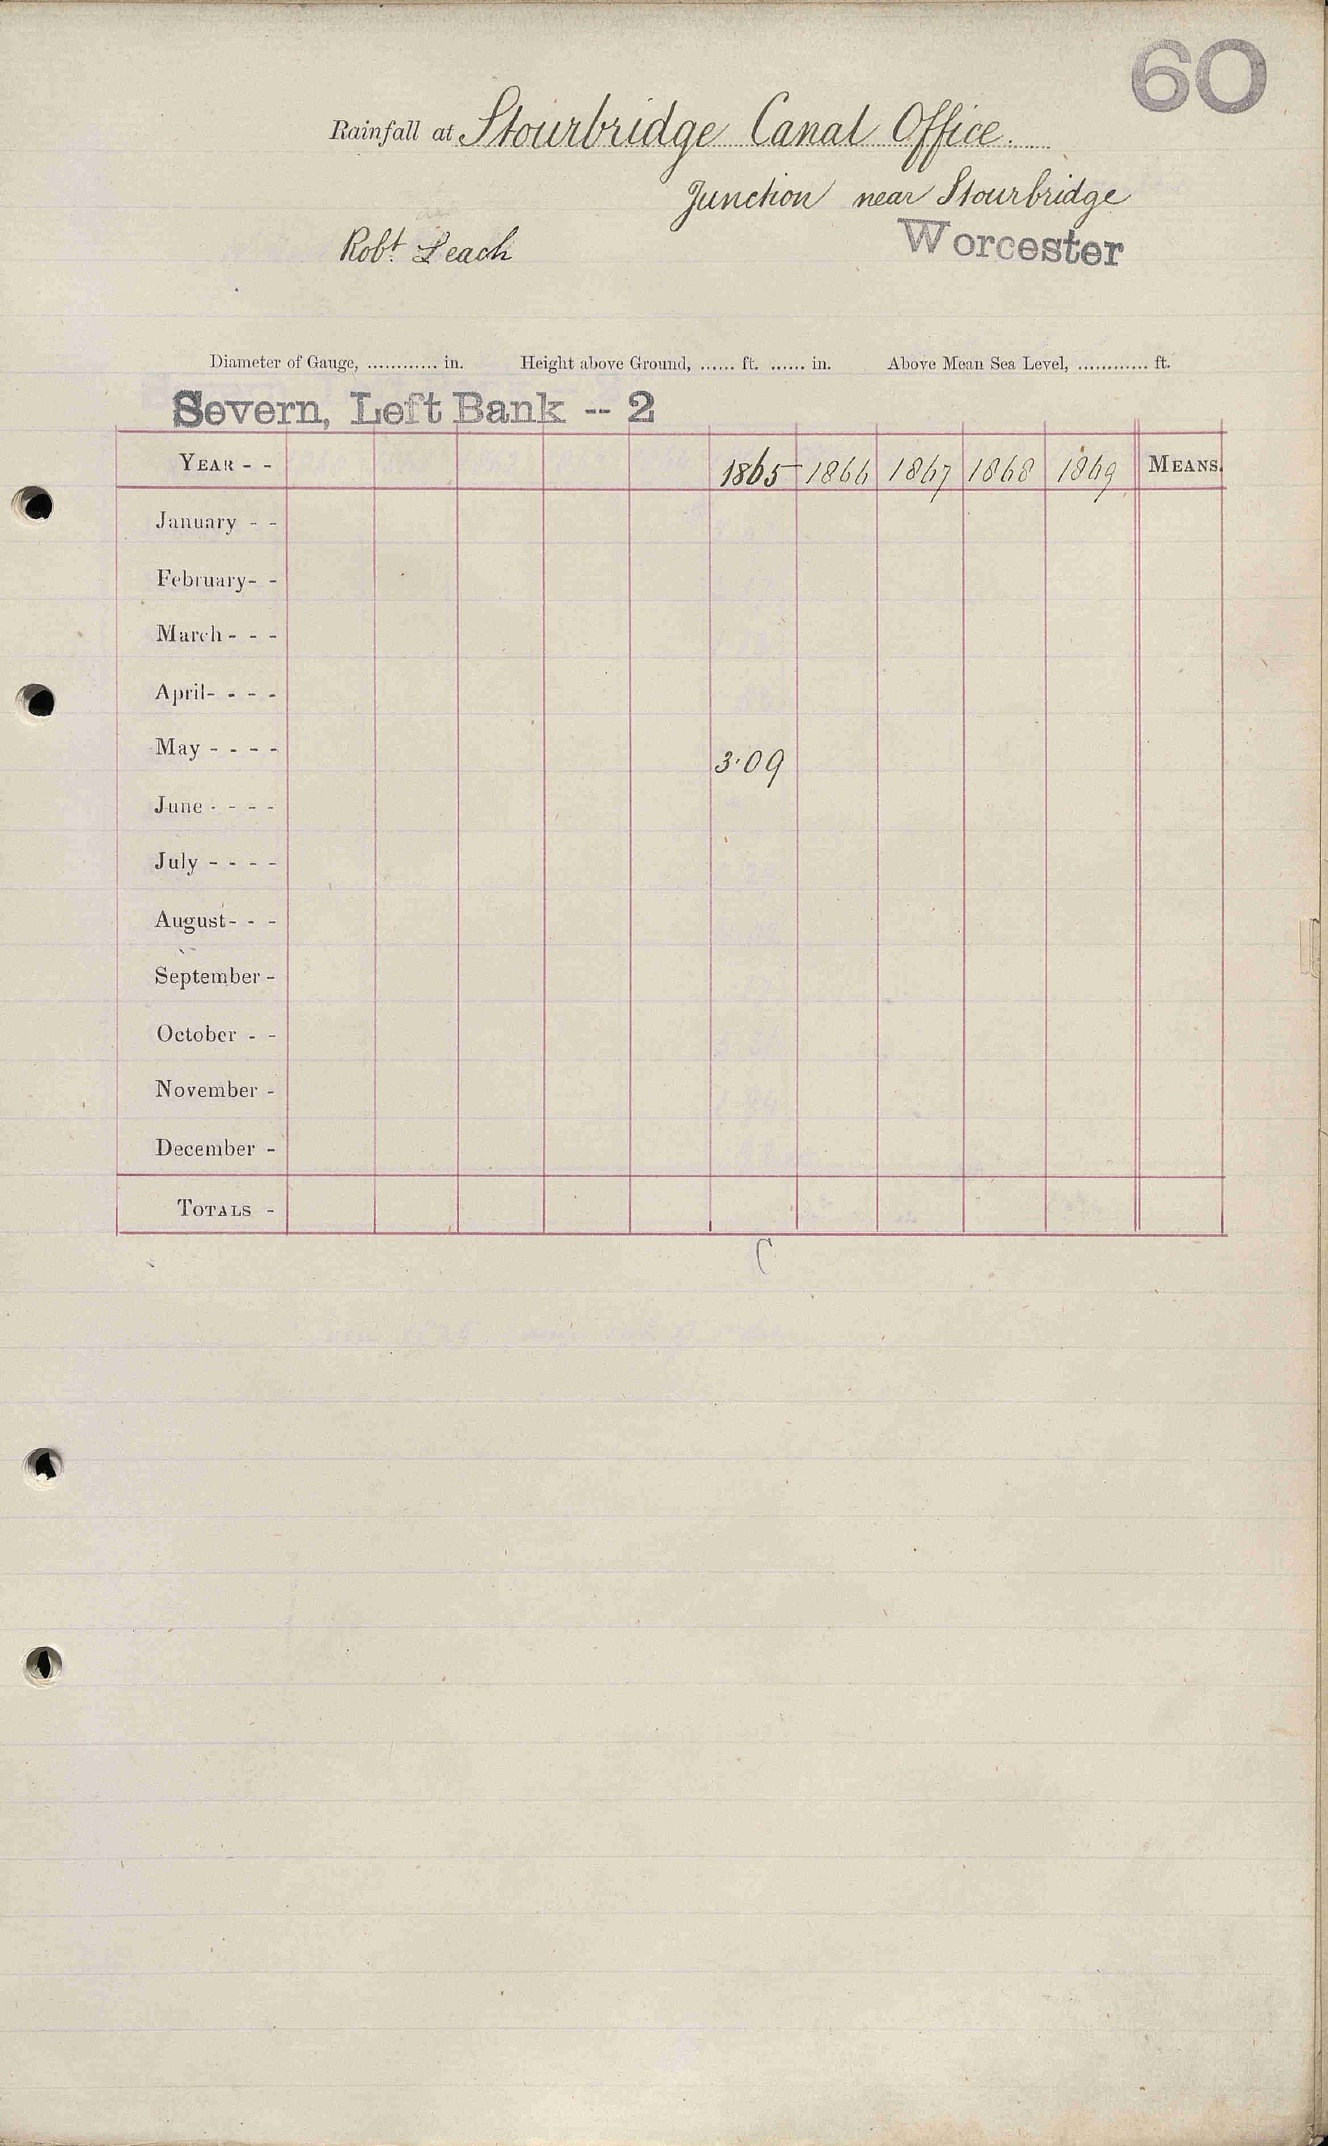 60
Rainfall at Stourbridge Canal Office.
Junction near Stourbridge
Robt. Leach
Worcester
Diameter of Gauge, ............ in. Height above Ground, ...... ft. ...... in. Above Mean Sea Level, ............ ft.
Severn, Left Bank -- 2
YEAR - - 1865 1866 1867 1868 1869 MEANS.
January - -
February - -
March - - -
April - - - -
May - - - - 3.09
June - - - -
July - - - -
August - - -
September -
October - -
November -
December -
TOTALS -